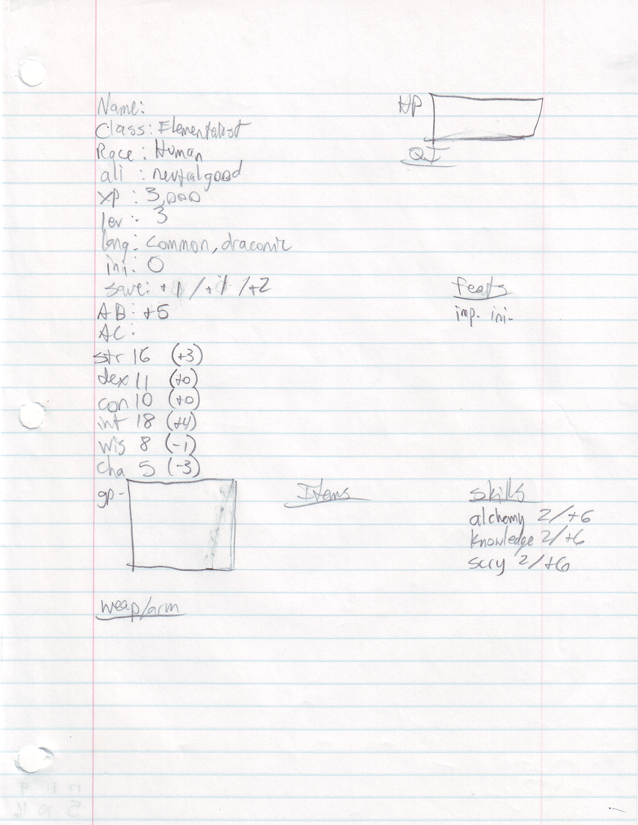 Name:
Class: Elementalist
Race: Human
ali: neutral good
xp: 3,000
lev: 3
lang: common, draconic
ini: 0
save: +1/+1/+2
AB: +5
AC:
str 16 (+3)
dex 11 (+0)
con 10 (+0)
int 18 (+4)
wis 8 (-1)
cha 5 (-3)
gp-
weap/arm
Items
HP
Feats
imp. ini.
skills
alchemy 2/+6
knowledge 2/+6
scry 2/+6